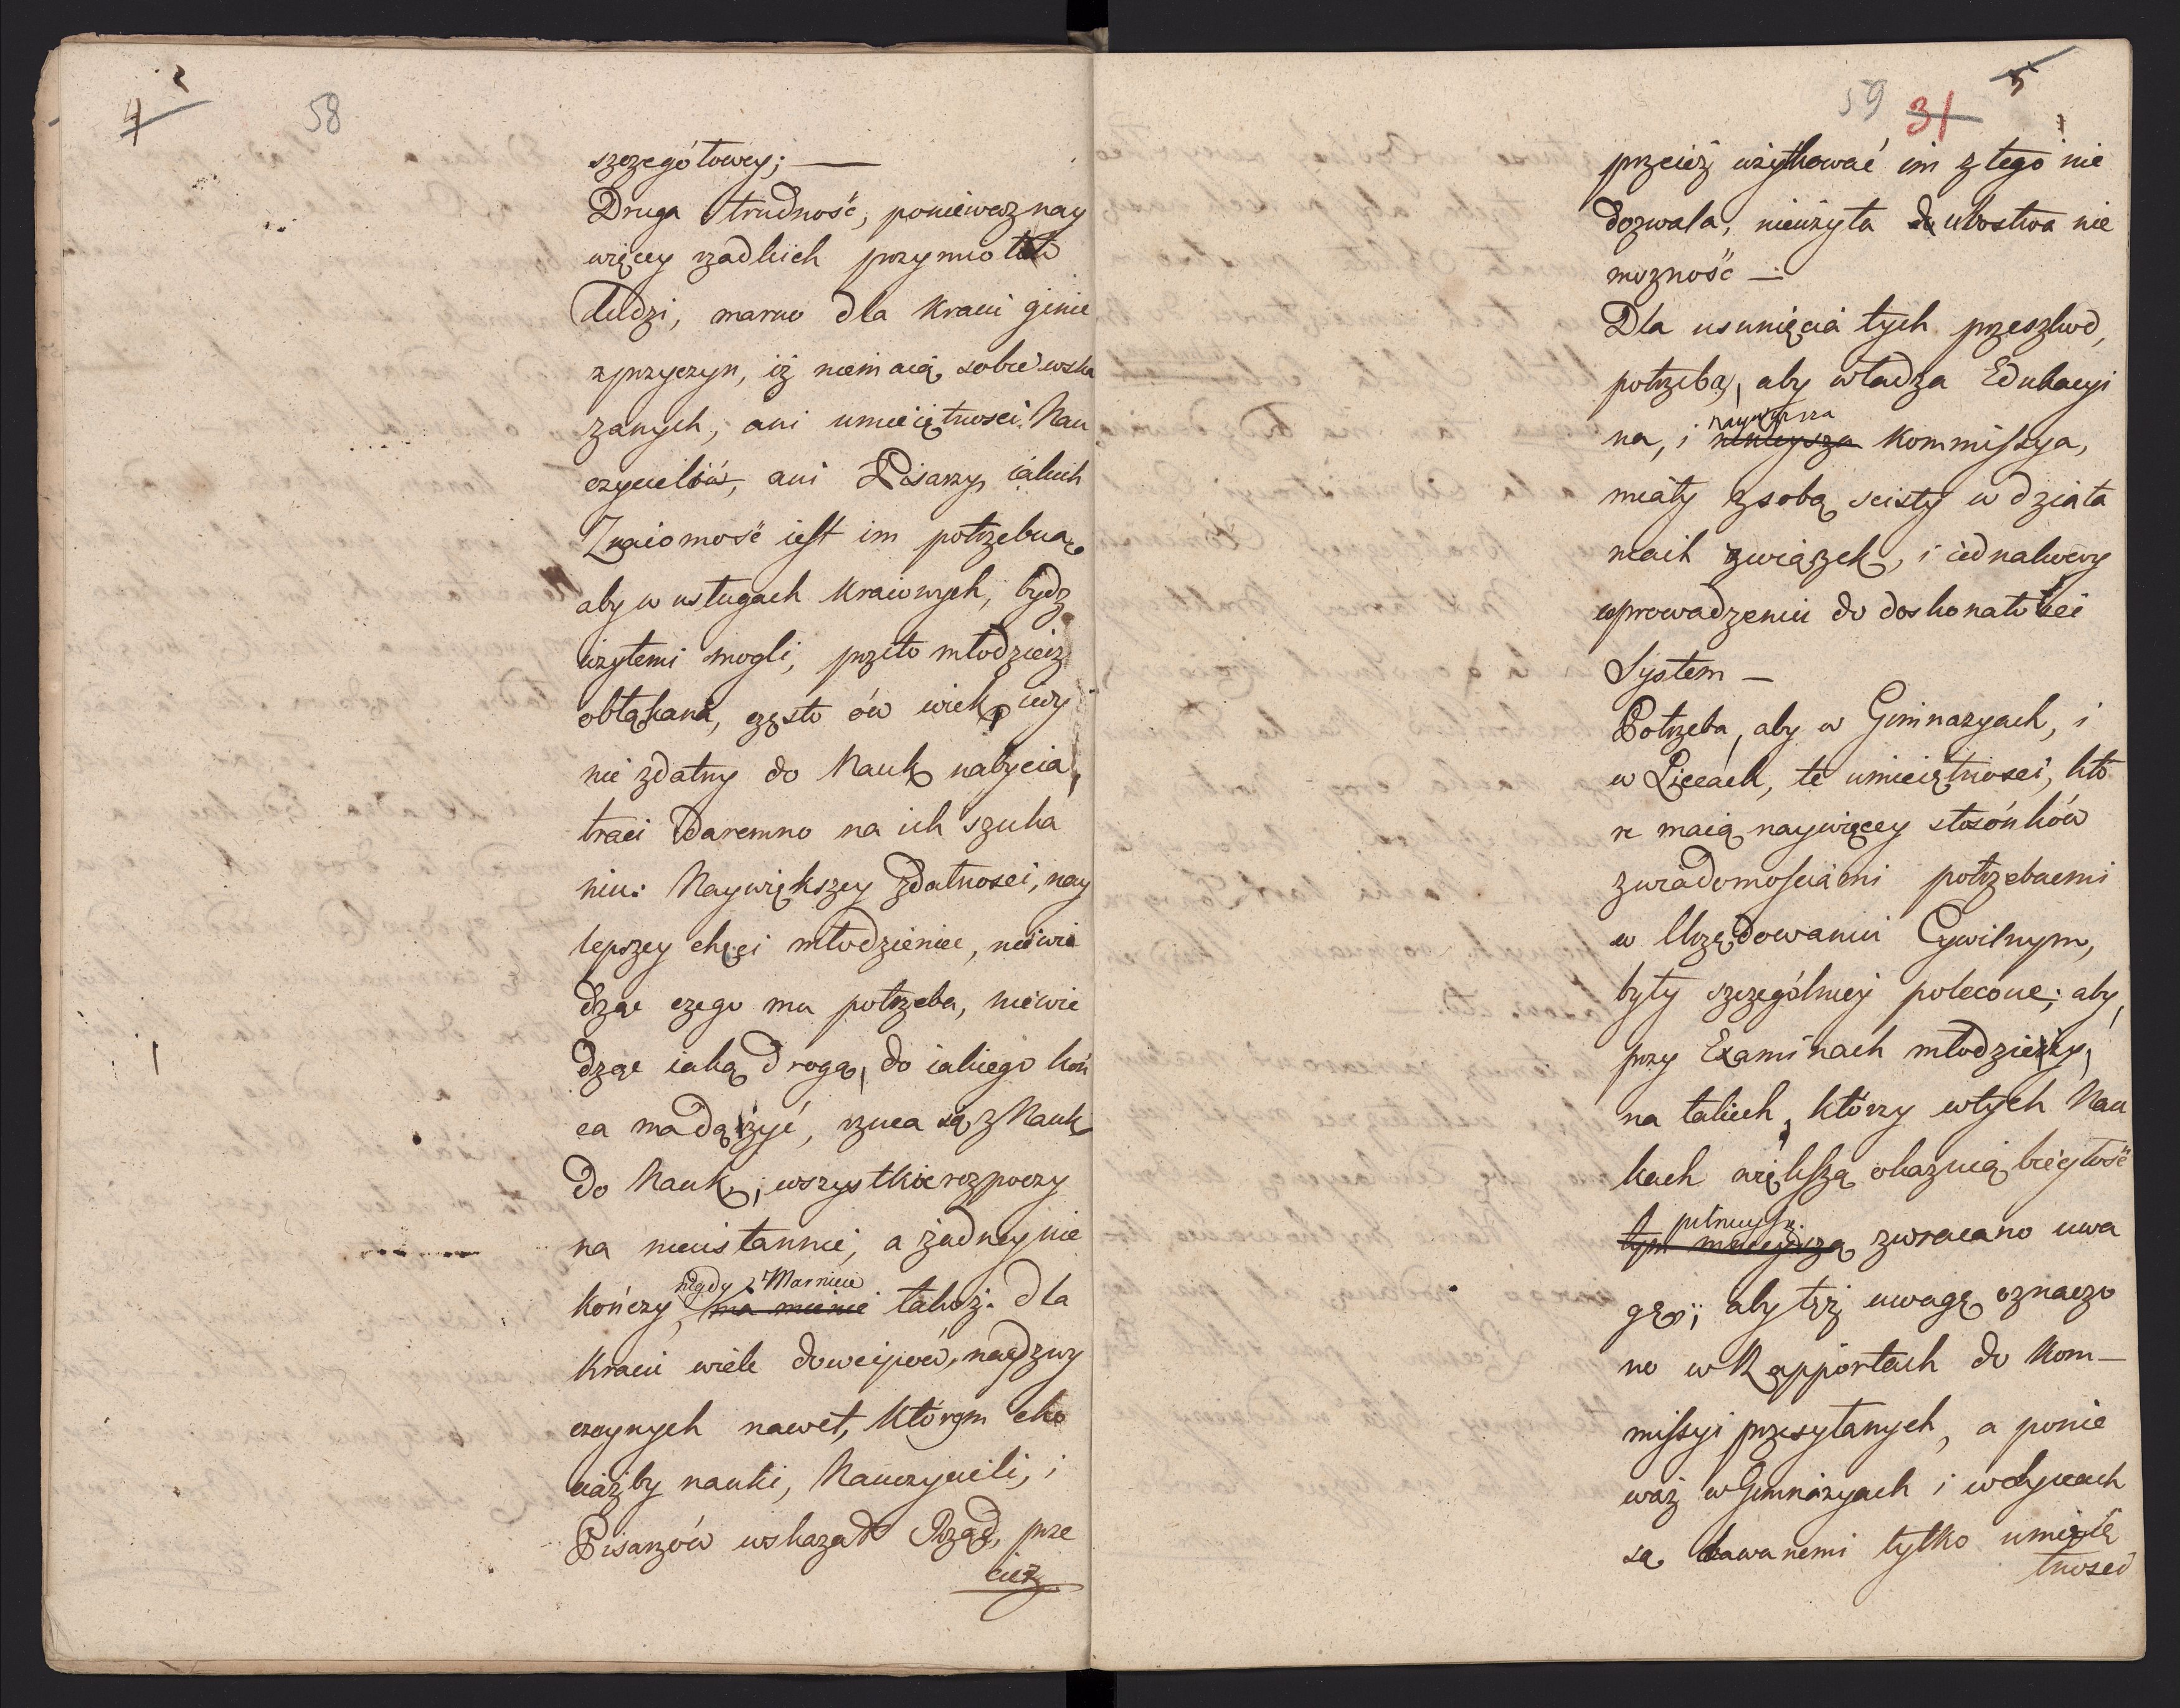 4 2
58
szczegółowey; —
Druga trudność, ponieważ nay
więcey rzadkich przymiotów
Ludzi, marno dla Kraiu ginie
z przyczyn, iż niemaią sobie wska
zanych, ani umieiętnosci Nau
czycielów, ani Pisarzy, iakich
Znaiomość iest im potrzebna,
aby w usługach Kraiowych, bydz
użytemi mogli, przeto młodzież
obłąkana, często ów wiek
nie zdatny do Nauk nabycia,
traci daremno na ich szuka
niu: Naywiększey Zdatnosci, nay
lepszey chęci młodzieniec, niewie
dząc czego mu potrzeba, niewie
dząc iaką drogą, do iakiego koń
ca ma dążyć, rzuca się z Nauk
do Nauk, wszystkie rozpoczy
na nieustannie, a żadney nie
nigdy. Marnieie
kończy, takoż dla
Kraiu wiele dowcipów, nadzwy
czaynych nawet, którym cho
ciażby nauki, Nauczycieli, i
Pisarzów wskazał Rząd, prze
cież
59 31 5
przcież użytkować im z tego nie
dozwala, nieużyta ubostwa nie
możność —
Dla usunięcia tych przeszkod,
potrzeba, aby władza Edukacyi
naywyższa
na, i ninieysza Kommissya,
miały z sobą scisły w działa
niach związek, i iednakowy
w prowadzeniu do doskonałości
System —
Potrzeba, aby w Gimnazyach, i
w Liceach, te umieiętnosci, któ
re maią naywięcey stosónków
z wiadomosciami potrzebnemi
w Urzędowaniu Cywilnym,
były szczególniey polecone; aby,
przy Examinach młodzieży,
na takich, którzy w tych Nau
kach większą okazuią biegłość
pilnieyszą
zwracano uwa
gę; aby tęż uwagę oznaczo
no w Rapportach do Kom—
missyi przesyłanych, a ponie
waż w Gimnazyach i w Lyceach
są dawanemi tylko umieię
tnosci